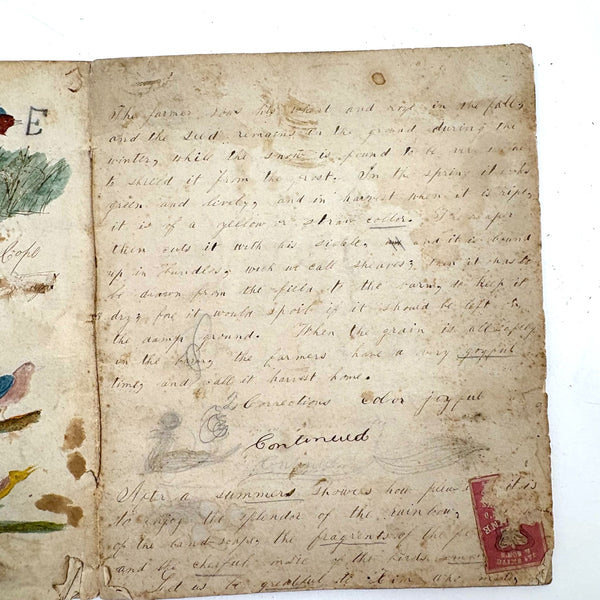 E
Cope
The farmer sows his wheat and rye in the fall,
and the seed remains in the ground during the
winter, while the snow is found to be
to shield it from the frost. In the spring it looks
green and lively, and in harvest when it is ripe,
it is of a yellow or straw collor. The reaper
then cuts it with his sickle, and it is bound
up in bundles, wich we call sheaves; then it has to
be drawn from the feild to the barn, to keep it
dry, for it would spoil if it should be left
the damp ground. When the grain is all safely
in the barn, the farmers have a very goyful
time, and call it harvest home.
2 Corrections color joyful
Continued
After a summers shower how it is
to enjoy the splendor of the rainbow,
of the landscape, the fragrents of the
and the cherful of the birds
Let us be greatful to him who